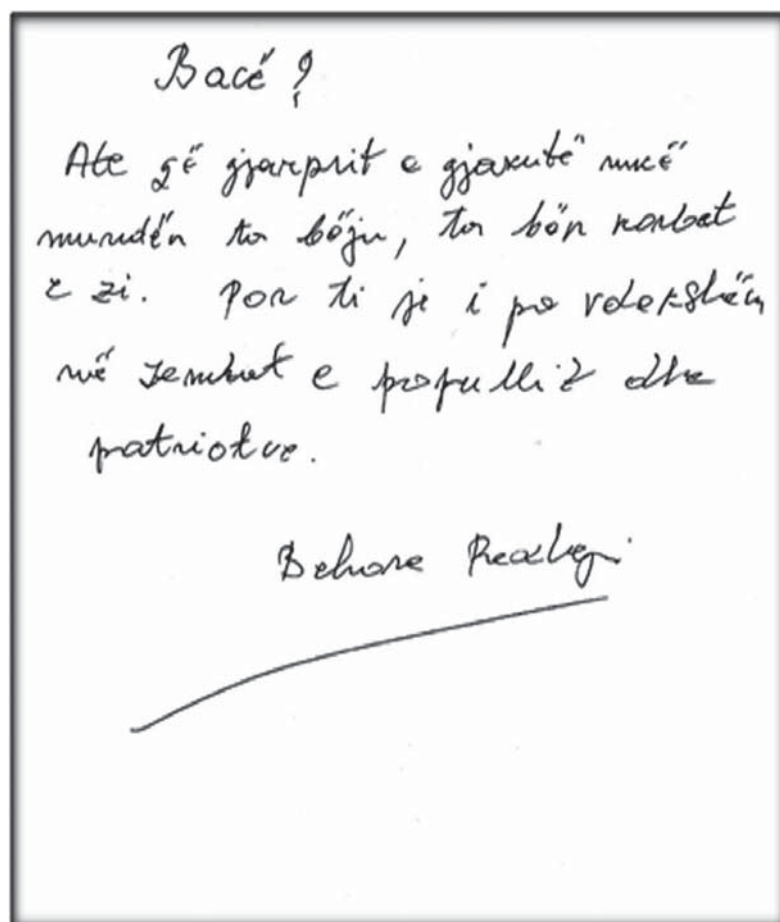 Bacë!
Ate që gjarprit e gjakutë nukë
mundën ta bëjn, ta bën korbat
e zi. Por ti je i pa vdekshëm
në zemrat e popullit dhe
patriotve.